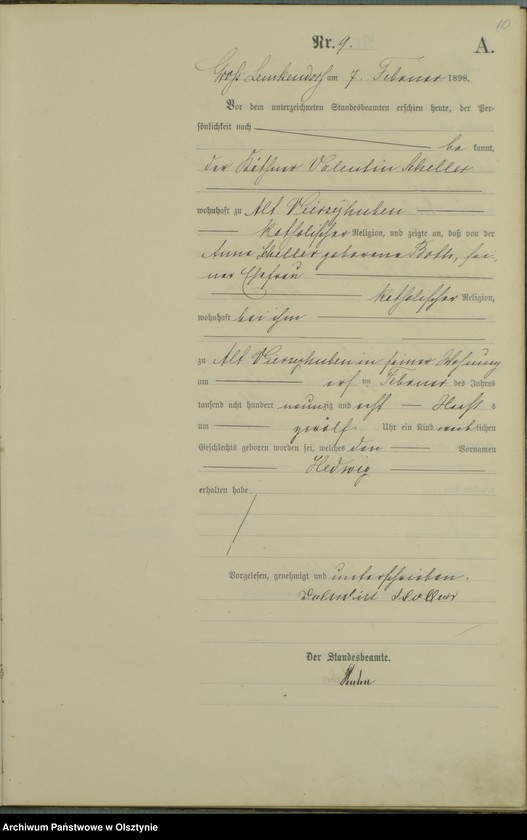 10
Nr. 9.
A.
Groß Lemkendorf am 7. Februar 1898.
Vor dem unterzeichneten Standesbeamten erschien heute, der Per-
sönlichkeit nach
be kannt,
der Käthner Valentin Scheller
wohnhaft zu Alt Vierzighuben
katholischer Religion, und zeigte an, daß von der
Anna Scheller geborene Both, sei-
ner Ehefrau
katholischer Religion,
wohnhaft bei ihm
zu Alt Vierzighuben in seiner Wohnung
am ten Februar des Jahres
tausend acht hundert neunzig und acht
um zwölf Uhr ein Kind weiblichen
Geschlechts geboren worden sei, welches den Vornamen
Hedwig
erhalten habe
Vorgelesen, genehmigt und unterschrieben.
Valentin Scheller
Der Standesbeamte.
Archiwum Państwowe w Olsztynie